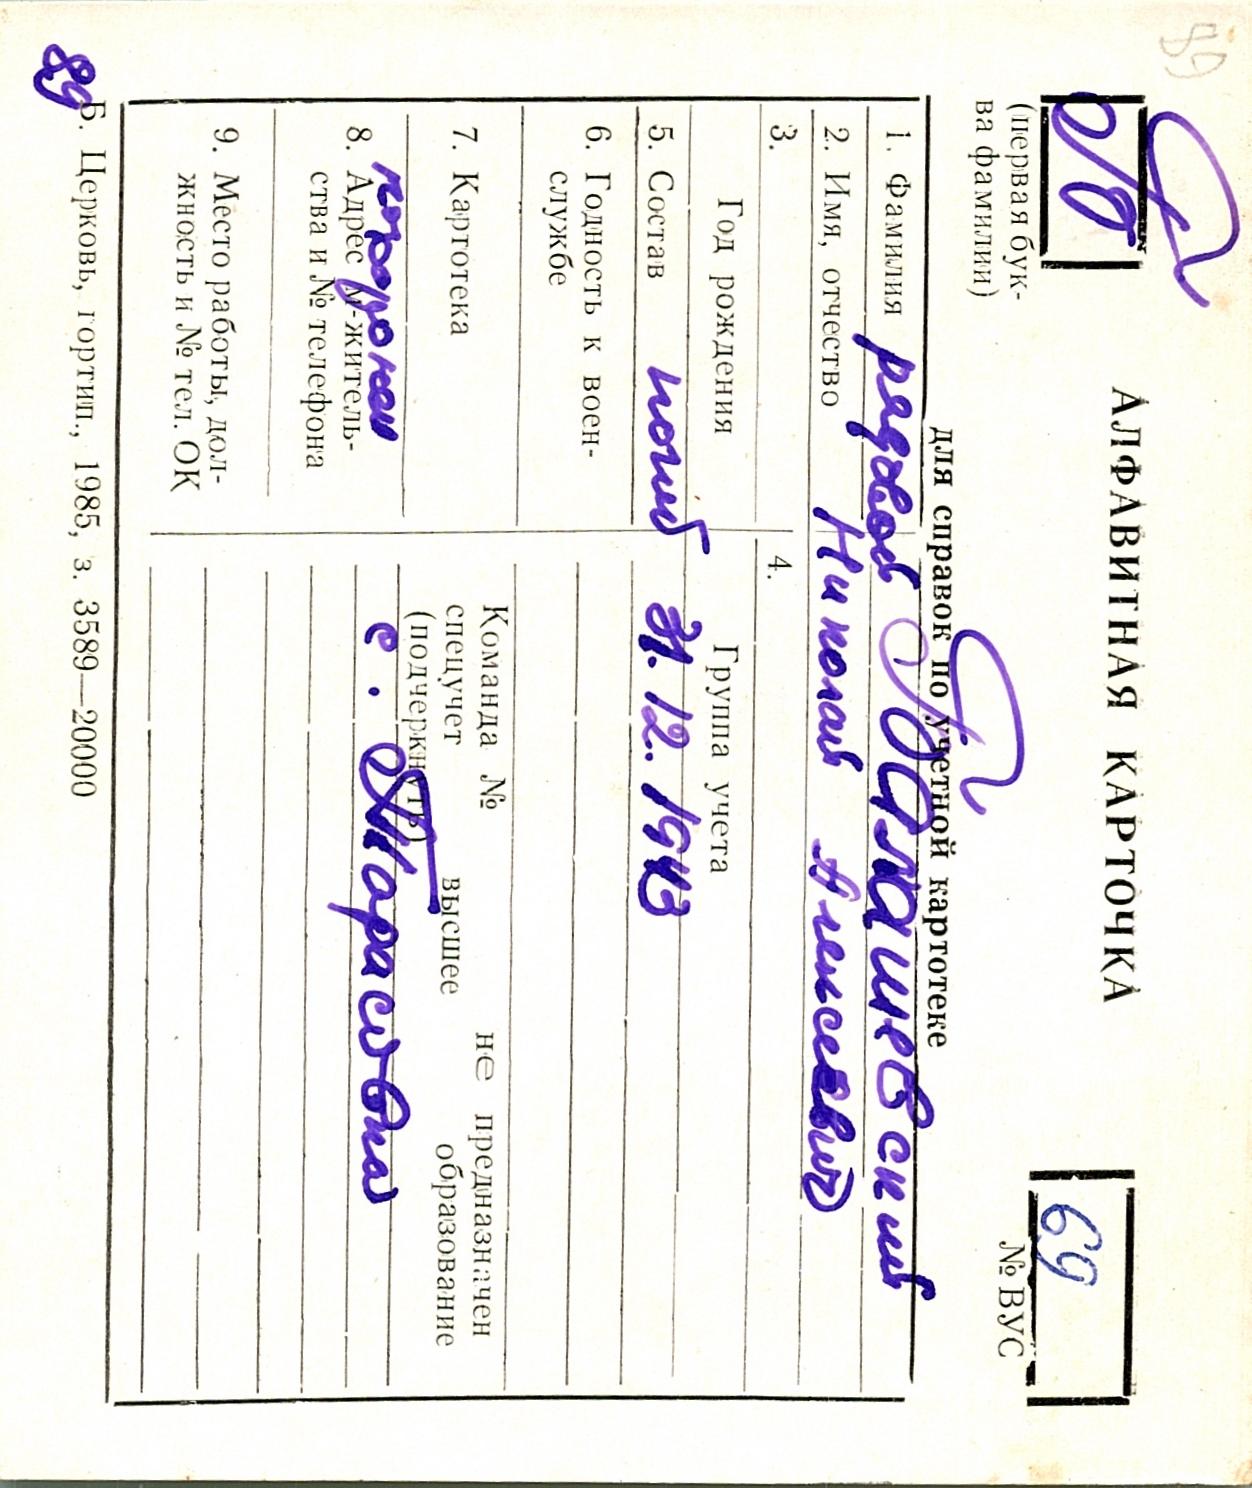 89
АЛФАВИТНАЯ КАРТОЧКА
(первая бук-
ва фамилии)
69
№ ВУС
для справок по учетной картотеке
1. Фамилия рядовой
2. Имя, отчество Николай Алексеевич
3.
4.
Год рождения
Группа учета
5. Состав погиб 31.12.1943
6. Годность к воен-
службе
7. Картотека
Команда № не предназначен
спецучет высшее образование
(подчеркнуть)
похоронен
8. Адрес м-житель-
ства и № телефона
с. Тарасовка
9. Место работы, дол-
жность и № тел. ОК
Б. Церковь, гортип., 1985, з. 3589—20000
89